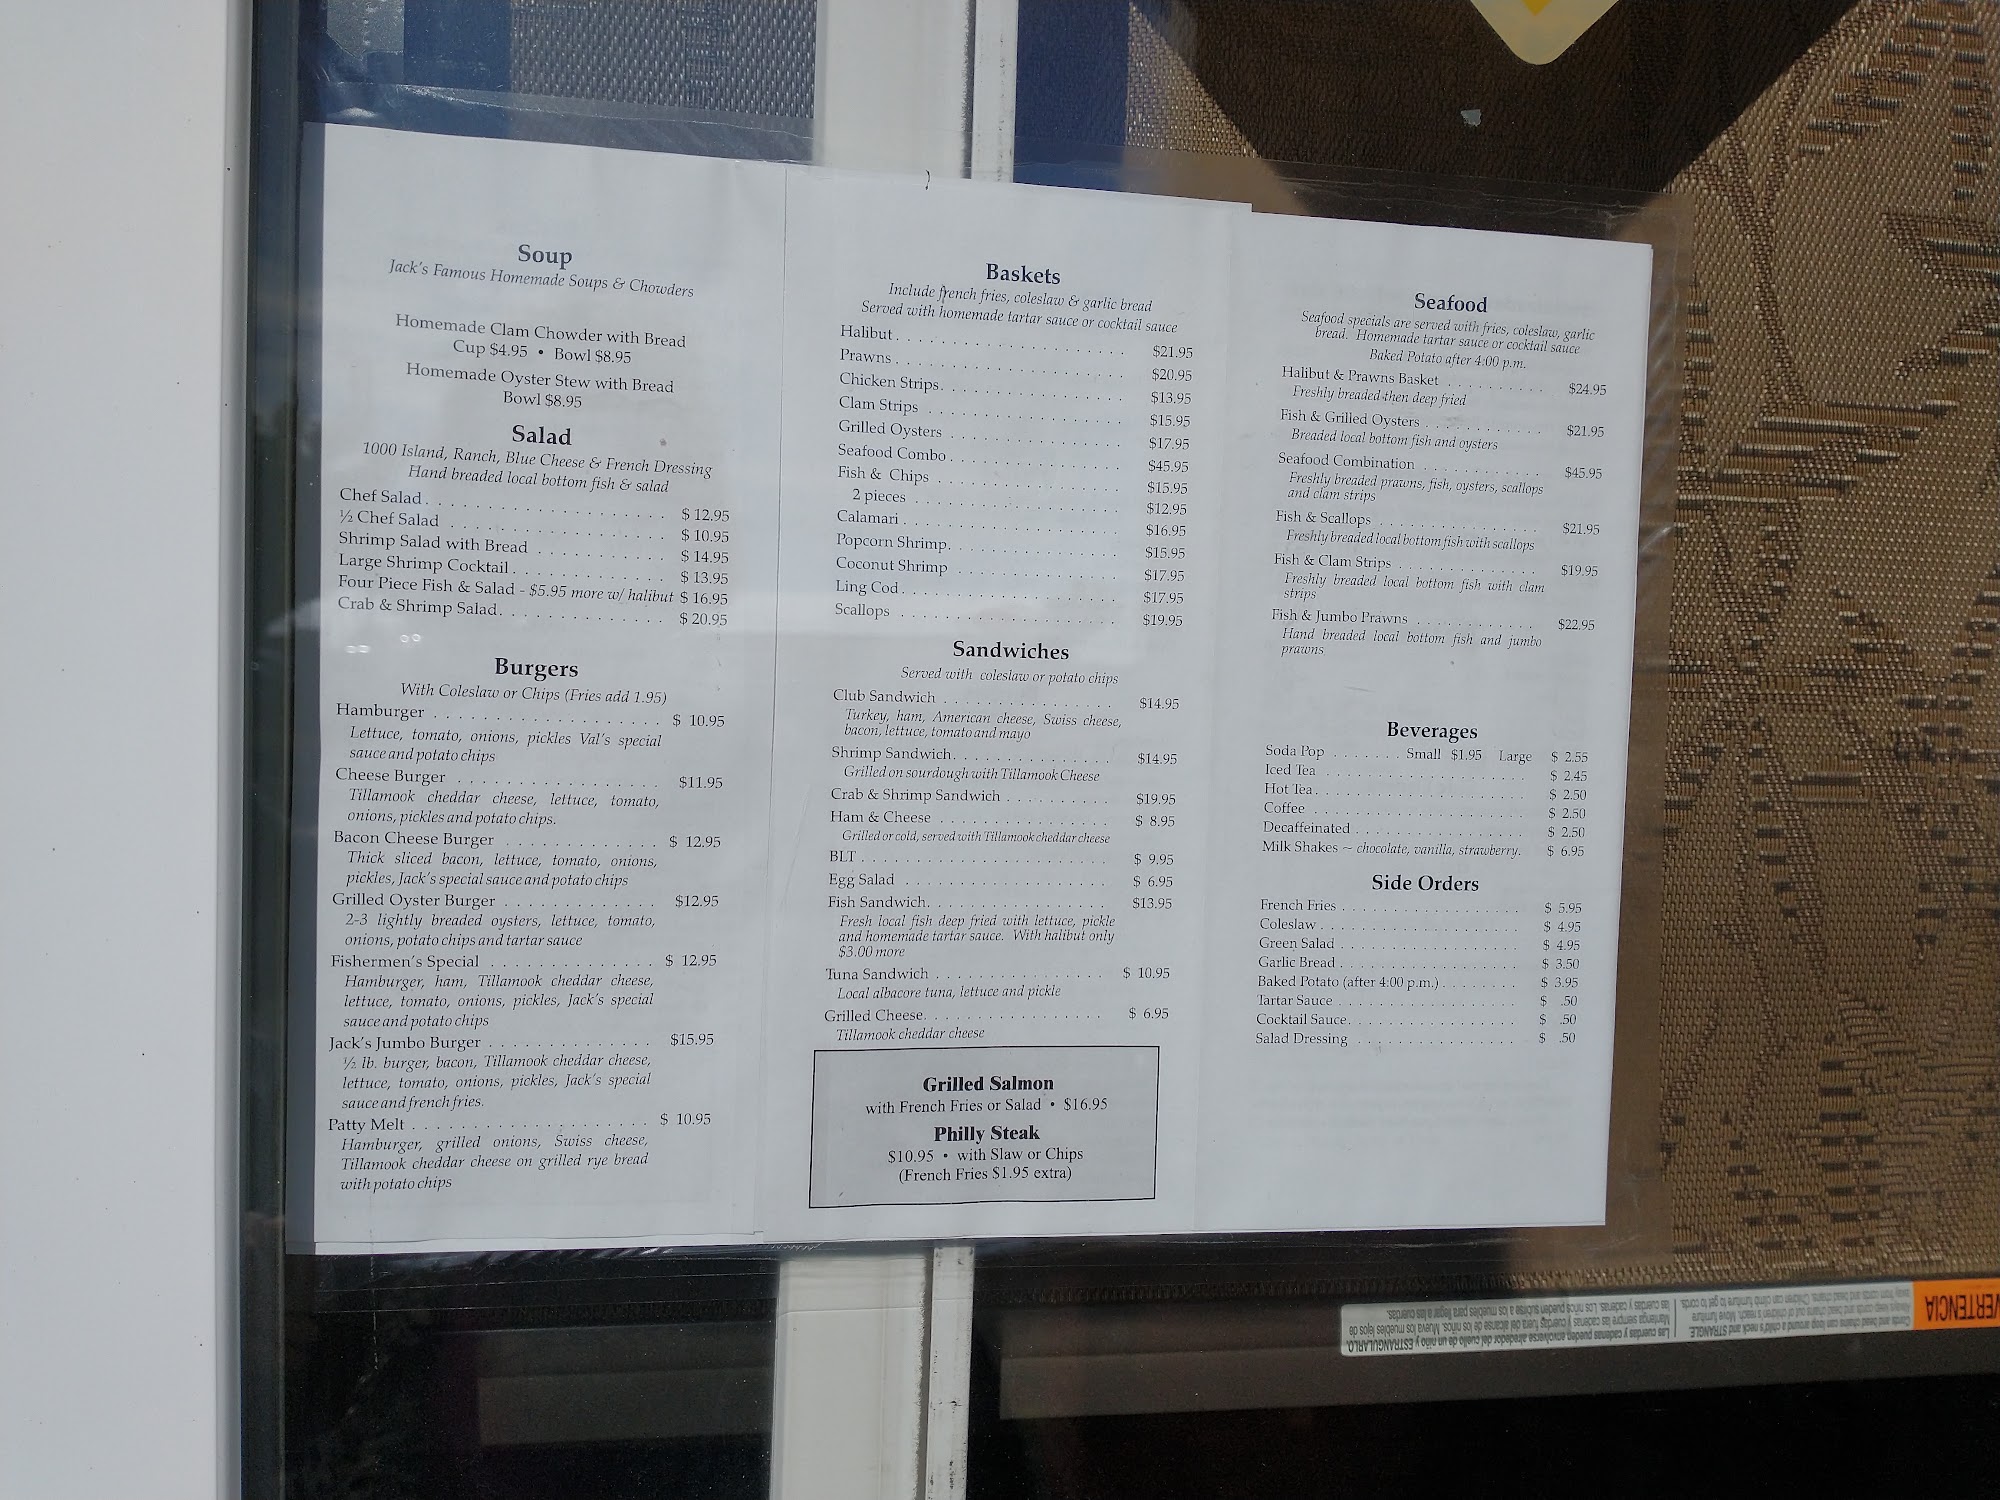 Soup
Jack's Famous Homemade Soups & Chowders
Homemade Clam Chowder with Bread
Cup $4.95 • Bowl $8.95
Homemade Oyster Stew with Bread
Bowl $8.95
Salad
1000 Island, Ranch, Blue Cheese & French Dressing
Hand breaded local bottom fish & salad
Chef Salad . . . . . . . . . . . . . . . . . . . . $ 12.95
½ Chef Salad . . . . . . . . . . . . . . . . . . $ 10.95
Shrimp Salad with Bread . . . . . . . . . . . $ 14.95
Large Shrimp Cocktail . . . . . . . . . . . . . $ 13.95
Four Piece Fish & Salad - $5.95 more w/ halibut $ 16.95
Crab & Shrimp Salad. . . . . . . . . . . . . . $ 20.95
Burgers
With Coleslaw or Chips (Fries add 1.95)
Hamburger . . . . . . . . . . . . . . . . . . . $ 10.95
Lettuce, tomato, onions, pickles Val's special
sauce and potato chips
Cheese Burger . . . . . . . . . . . . . . . . . $11.95
Tillamook cheddar cheese, lettuce, tomato,
onions, pickles and potato chips.
Bacon Cheese Burger . . . . . . . . . . . . . $ 12.95
Thick sliced bacon, lettuce, tomato, onions,
pickles, Jack's special sauce and potato chips
Grilled Oyster Burger . . . . . . . . . . . . . $12.95
2-3 lightly breaded oysters, lettuce, tomato,
onions, potato chips and tartar sauce
Fishermen's Special . . . . . . . . . . . . . . $ 12.95
Hamburger, ham, Tillamook cheddar cheese,
lettuce, tomato, onions, pickles, Jack's special
sauce and potato chips
Jack's Jumbo Burger . . . . . . . . . . . . . . $15.95
½ lb. burger, bacon, Tillamook cheddar cheese,
lettuce, tomato, onions, pickles, Jack's special
sauce and french fries.
Patty Melt . . . . . . . . . . . . . . . . . . . . $ 10.95
Hamburger, grilled onions, Swiss cheese,
Tillamook cheddar cheese on grilled rye bread
with potato chips
Baskets
Include french fries, coleslaw & garlic bread
Served with homemade tartar sauce or cocktail sauce
Halibut. . . . . . . . . . . . . . . . . . . . . $21.95
Prawns . . . . . . . . . . . . . . . . . . . . . $20.95
Chicken Strips. . . . . . . . . . . . . . . . . $13.95
Clam Strips . . . . . . . . . . . . . . . . . . $15.95
Grilled Oysters . . . . . . . . . . . . . . . . $17.95
Seafood Combo . . . . . . . . . . . . . . . . $45.95
Fish & Chips . . . . . . . . . . . . . . . . . $15.95
2 pieces . . . . . . . . . . . . . . . . . . . $12.95
Calamari . . . . . . . . . . . . . . . . . . . . $16.95
Popcorn Shrimp. . . . . . . . . . . . . . . . $15.95
Coconut Shrimp . . . . . . . . . . . . . . . $17.95
Ling Cod . . . . . . . . . . . . . . . . . . . . $17.95
Scallops . . . . . . . . . . . . . . . . . . . . $19.95
Sandwiches
Served with coleslaw or potato chips
Club Sandwich . . . . . . . . . . . . . . . . $14.95
Turkey, ham, American cheese, Swiss cheese,
bacon, lettuce, tomato and mayo
Shrimp Sandwich. . . . . . . . . . . . . . . $14.95
Grilled on sourdough with Tillamook Cheese
Crab & Shrimp Sandwich . . . . . . . . . . $19.95
Ham & Cheese . . . . . . . . . . . . . . . . $ 8.95
Grilled or cold, served with Tillamook cheddar cheese
BLT . . . . . . . . . . . . . . . . . . . . . . . $ 9.95
Egg Salad . . . . . . . . . . . . . . . . . . . $ 6.95
Fish Sandwich. . . . . . . . . . . . . . . . . $13.95
Fresh local fish deep fried with lettuce, pickle
and homemade tartar sauce. With halibut only
$3.00 more
Tuna Sandwich . . . . . . . . . . . . . . . . $ 10.95
Local albacore tuna, lettuce and pickle
Grilled Cheese. . . . . . . . . . . . . . . . . $ 6.95
Tillamook cheddar cheese
Grilled Salmon
with French Fries or Salad • $16.95
Philly Steak
$10.95 • with Slaw or Chips
(French Fries $1.95 extra)
Seafood
Seafood specials are served with fries, coleslaw, garlic
bread. Homemade tartar sauce or cocktail sauce
Baked Potato after 4:00 p.m.
Halibut & Prawns Basket . . . . . . . . . . $24.95
Freshly breaded then deep fried
Fish & Grilled Oysters . . . . . . . . . . . . $21.95
Breaded local bottom fish and oysters
Seafood Combination . . . . . . . . . . . . $45.95
Freshly breaded prawns, fish, oysters, scallops
and clam strips
Fish & Scallops . . . . . . . . . . . . . . . . $21.95
Freshly breaded local bottom fish with scallops
Fish & Clam Strips . . . . . . . . . . . . . . $19.95
Freshly breaded local bottom fish with clam
strips
Fish & Jumbo Prawns . . . . . . . . . . . . $22.95
Hand breaded local bottom fish and jumbo
prawns
Beverages
Soda Pop . . . . . . . Small $1.95 Large $ 2.55
Iced Tea . . . . . . . . . . . . . . . . . . . . . $ 2.45
Hot Tea . . . . . . . . . . . . . . . . . . . . . $ 2.50
Coffee . . . . . . . . . . . . . . . . . . . . . . $ 2.50
Decaffeinated . . . . . . . . . . . . . . . . . $ 2.50
Milk Shakes ~ chocolate, vanilla, strawberry. $ 6.95
Side Orders
French Fries . . . . . . . . . . . . . . . . . . $ 5.95
Coleslaw . . . . . . . . . . . . . . . . . . . . $ 4.95
Green Salad . . . . . . . . . . . . . . . . . . $ 4.95
Garlic Bread . . . . . . . . . . . . . . . . . . $ 3.50
Baked Potato (after 4:00 p.m.) . . . . . . . $ 3.95
Tartar Sauce . . . . . . . . . . . . . . . . . . $ .50
Cocktail Sauce. . . . . . . . . . . . . . . . . $ .50
Salad Dressing . . . . . . . . . . . . . . . . $ .50
VERTENCIA